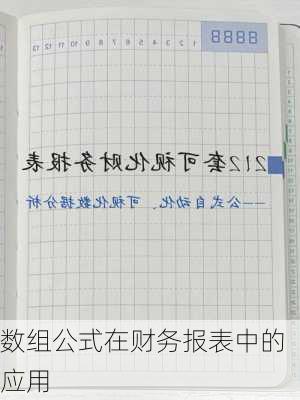 8888
1 2 3 4 5 6 7 8 9 10 11 12 13
212套可视化财务报表
——公式自动化、可视化数据分析
数组公式在财务报表中的
应用